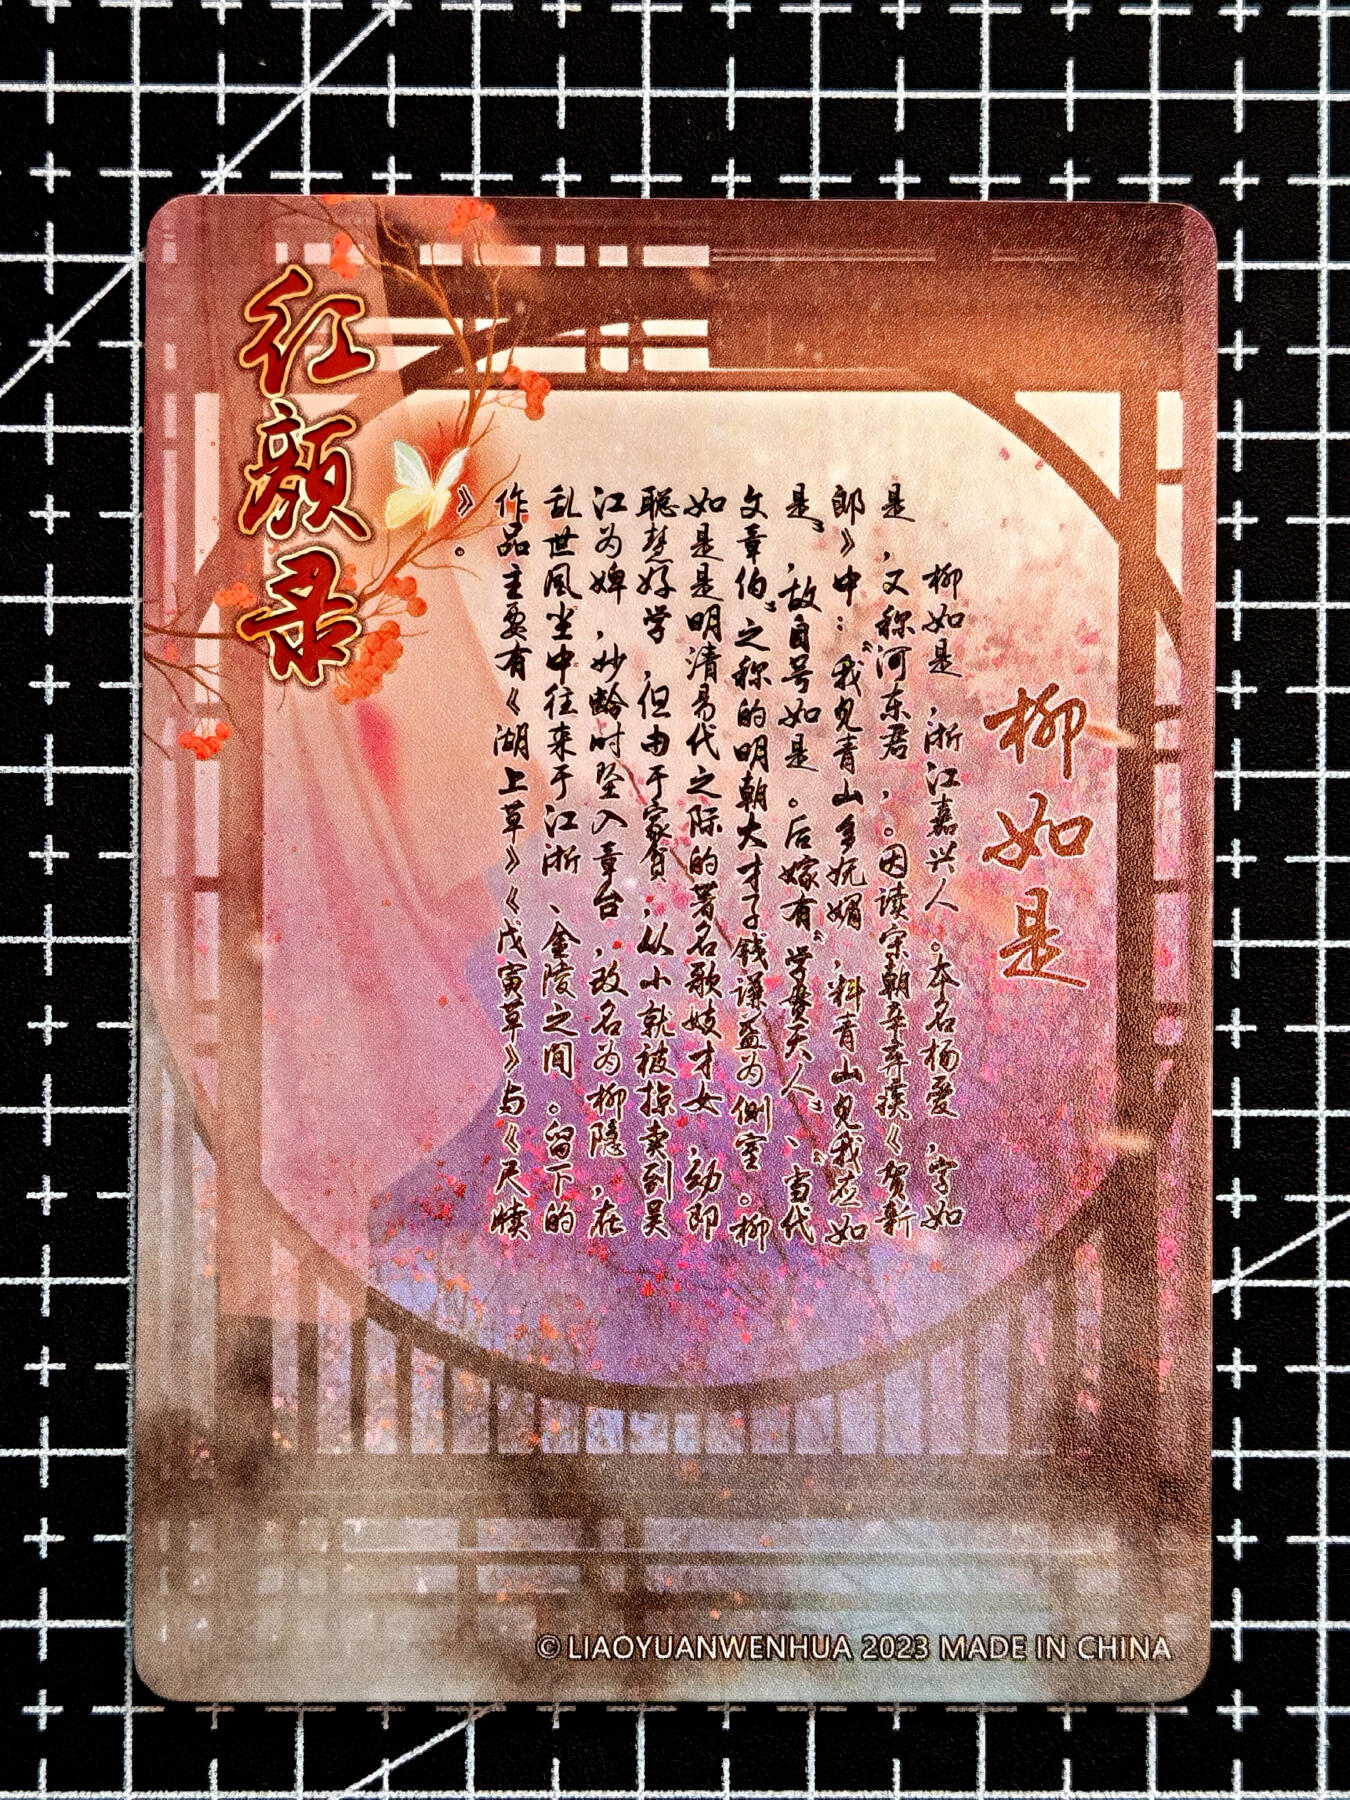 红颜录
柳如是
柳如是，浙江嘉兴人。本名杨爱，字如
是，又称河东君，。因读宋朝辛弃疾《贺新
郎》中：“我见青山多妩媚，料青山见我应如
是”，故自号如是。后嫁有“学贯天人”、“当代
文章伯”之称的明朝大才子钱谦益为侧室。柳
如是是明清易代之际的著名歌妓才女，幼即
聪慧好学，但由于家贫，从小就被掠卖到吴
江为婢，妙龄时坠入章台，改名为柳隐，在
乱世风尘中往来于江浙、金陵之间。留下的
作品主要有《湖上草》《戊寅草》与《尺牍
》。
© LIAOYUANWENHUA 2023 MADE IN CHINA